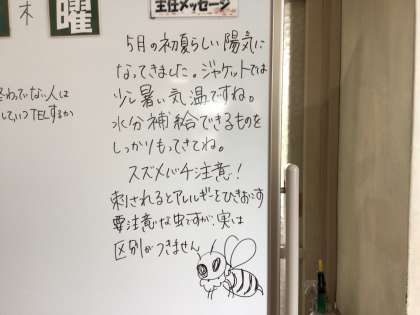 木
曜
主任メッセージ
5月の初夏らしい陽気に
なってきました。ジャケットでは
少し暑い気温ですね。
水分補給できるものを
しっかりもってきてね。
スズメバチ注意!
刺されるとアレルギーをひきおこす
要注意な虫ですが、実は
区別がつきません
終わっていない人は
していつTELするか